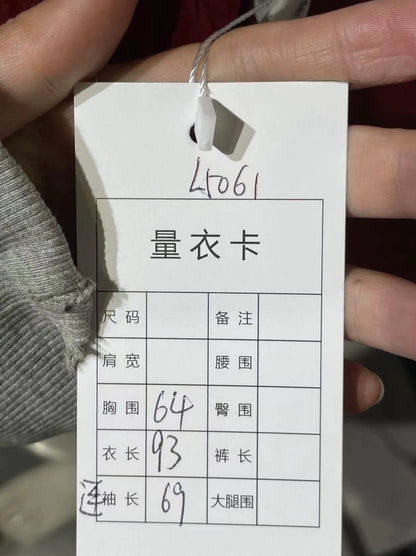 L5061
量衣卡
尺码 备注
肩宽 腰围
胸围 64 臀围
衣长 93 裤长
连袖长 69 大腿围